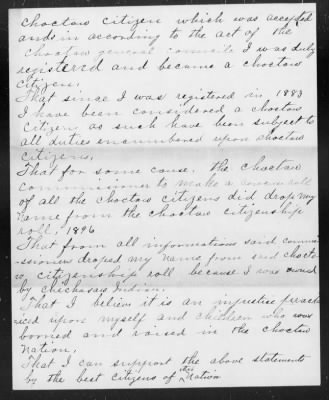 choctaw citizen which was accepted
and in according to the act of the
choctaw general council I was duly
registered and became a choctaw
citizen.
That since I was registered in 1883
I have been considered a choctaw
citizen as such have been subject to
all duties encumbered upon choctaw
citizens.
That for some cause. the choctaw
commissioner to make a census roll
of all the choctaw citizens did drop my
name from the choctaw citizenship
roll, 1896
That from all informations said commi-
ssioners droped my name from said choct-
aw citizenship roll because I was owned
by chickasaw Indian.
That I believe it is an injustice pract-
iced upon myself and children who were
borned and raised in the choctaw
nation.
That I can support the above statements
by the best citizens of the Nation